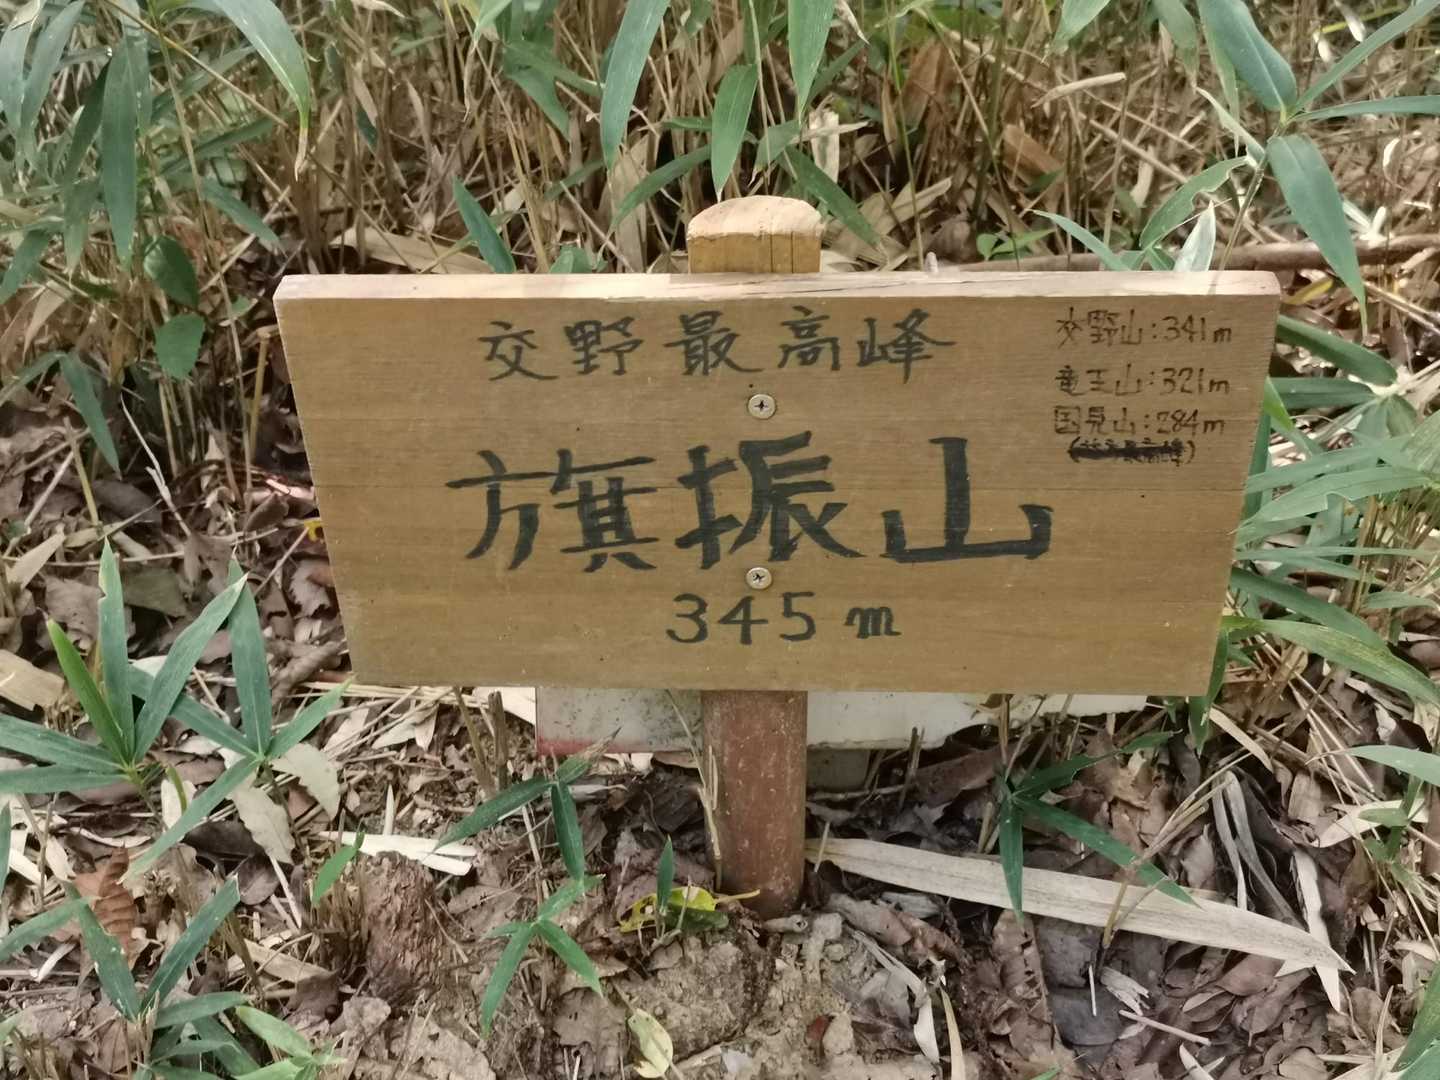 交野最高峰
旗振山
345m
交野山:341m
竜王山:321m
国見山:284m